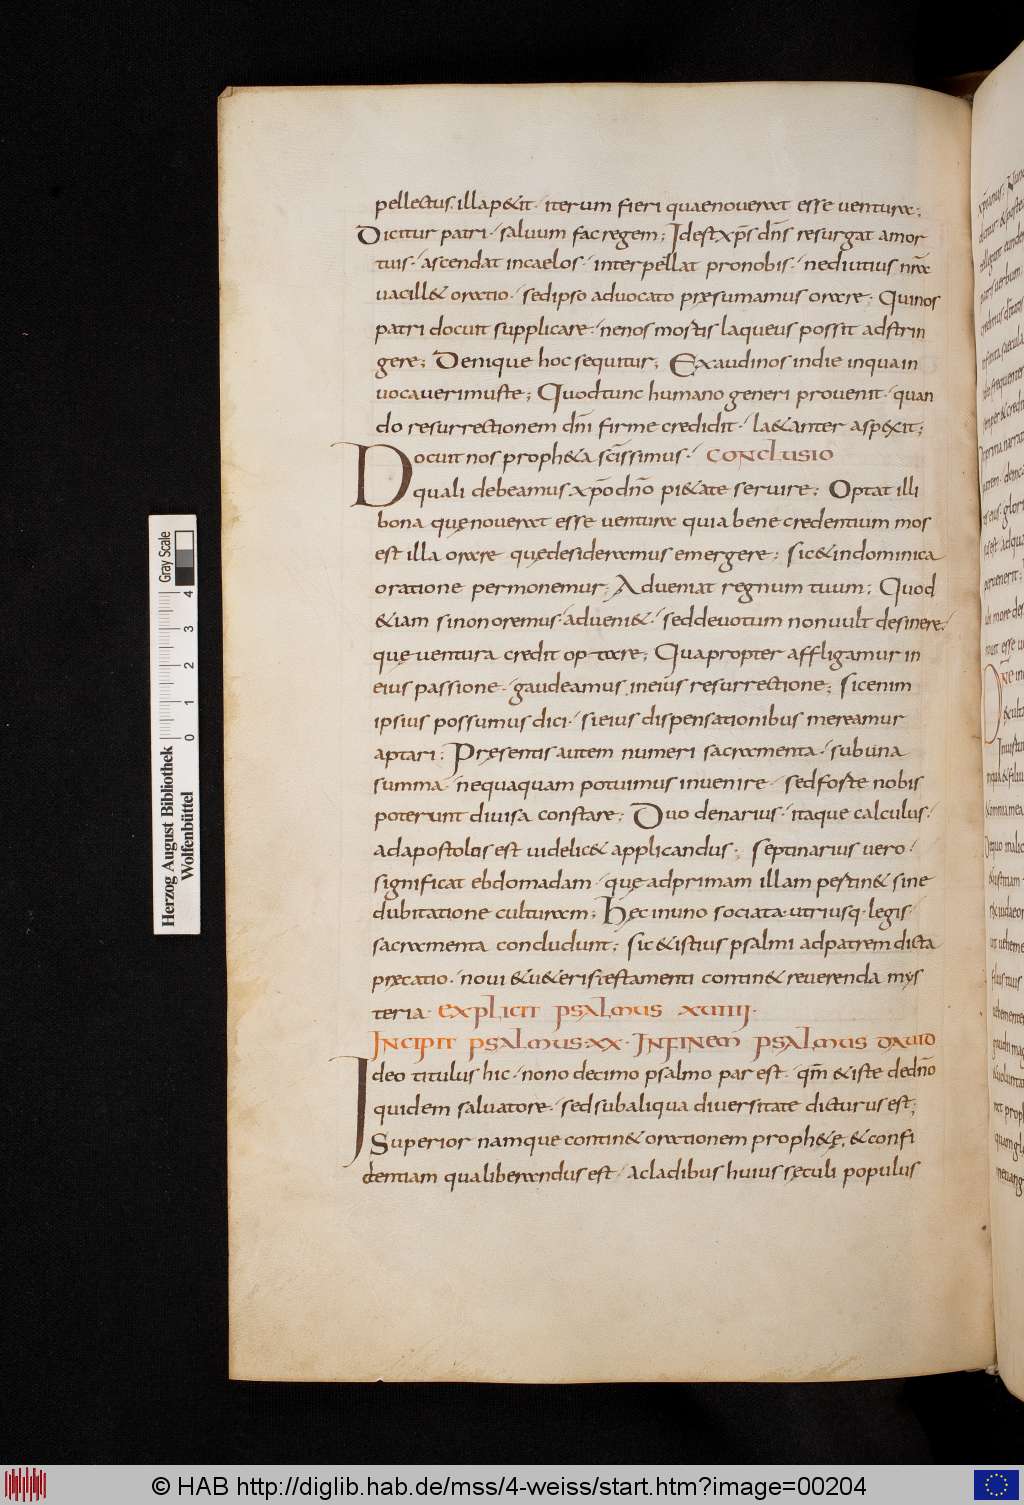 pellectus. illap&it· iterum fieri quaenouerat esse uentura;
Dicitur patri· saluum fac regem; Idest xp̄s dn̄s resurgat amor
tuis· ascendat incaelos· interpellat pronobis· nediutius nr̄a
uacill& oratio· sedipso aduocato pręsumamus orare; Quinos
patri docuit supplicare· nenos mortis laqueus possit adstrin
gere; Denique hoc sequitur; Exaudinos indie inquain
uocauerimuste; Quodtunc humano generi prouenit· quan
do resurrectionem dn̄i firme credidit· la&anter asp&it;
Docuit nos proph&a sc̄issimus· CONCLUSIO
quali debeamus xp̄o dn̄o pi&ate seruire; Optat illi
bona quęnouerat esse uentura quia bene credentium mos
est illa orare quędesideramus emergere; sic&indominica
oratione permonemur; Adueniat regnum tuum; Quod
&iam sinonoremus· adueni&· seddeuotum nonuult desinere·
quę uentura credit optare; Quapropter affligamur in
eius passione· gaudeamus ineius resurrectione; Sicenim
ipsius possumus dici· sieius dispensationibus mereamur
aptari; Pręsentis autem numeri sacramenta· subuna
summa· nequaquam potuimus inuenire· sedforte nobis
poterunt diuisa constare; Duo denarius· itaque calculus·
adapostolos est uidelic& applicandus; septinarius uero·
significat ebdomadam· quę adprimam illam pertin& sine
dubitatione culturam; Hęc inuno sociata· utriusq· legis·
sacramenta concludunt; sic&istius psalmi adpatrem dicta
pręcatio· noui &u&eris testamenti contin& reuerenda mys
teria· EXPLICIT PSALMUS XVIIII·
INCIPIT PSALMUS·XX· IN FINEM PSALMUS DAVID
Ideo titulus hic· nono decimo psalmo par est· qm̄ &iste dedn̄o
quidem saluatore· sedsubaliqua diuersitate dicturus est;
Superior namque contin& orationem proph&ę, &confi
dentiam qualiberandus est· acladibus huius sęculi populus
Herzog August Bibliothek
Wolfenbüttel
0 1 2 3 4
Gray Scale
© HAB http://diglib.hab.de/mss/4-weiss/start.htm?image=00204